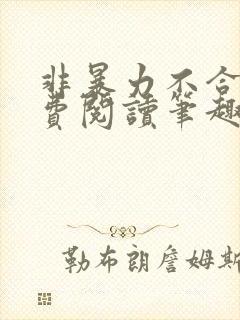 非暴力不合
費閱讀筆趣
勒布朗詹姆斯